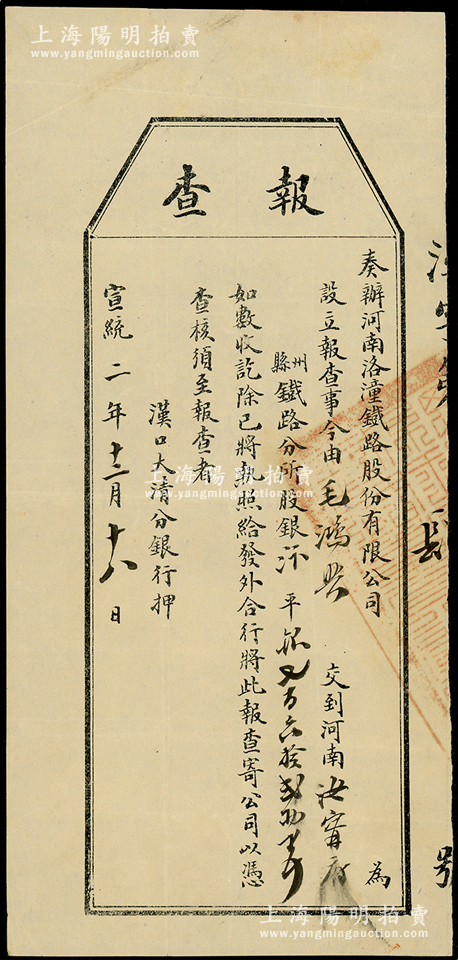 上海陽明拍賣
www.yangmingauction.com
報查
奏辦河南洛潼鐵路股份有限公司 為
設立報查事今由毛鴻 交到河南汝甯府
州縣鐵路分所股銀 平 百六拾 
如數收訖除已將執照給發外合行將此報查寄公司以憑
查核須至報查者
漢口大清分銀行押
宣統二年十二月十八日
號
上海陽明拍賣
www.yangmingauction.com
上海陽明拍賣
www.yangmingauction.com